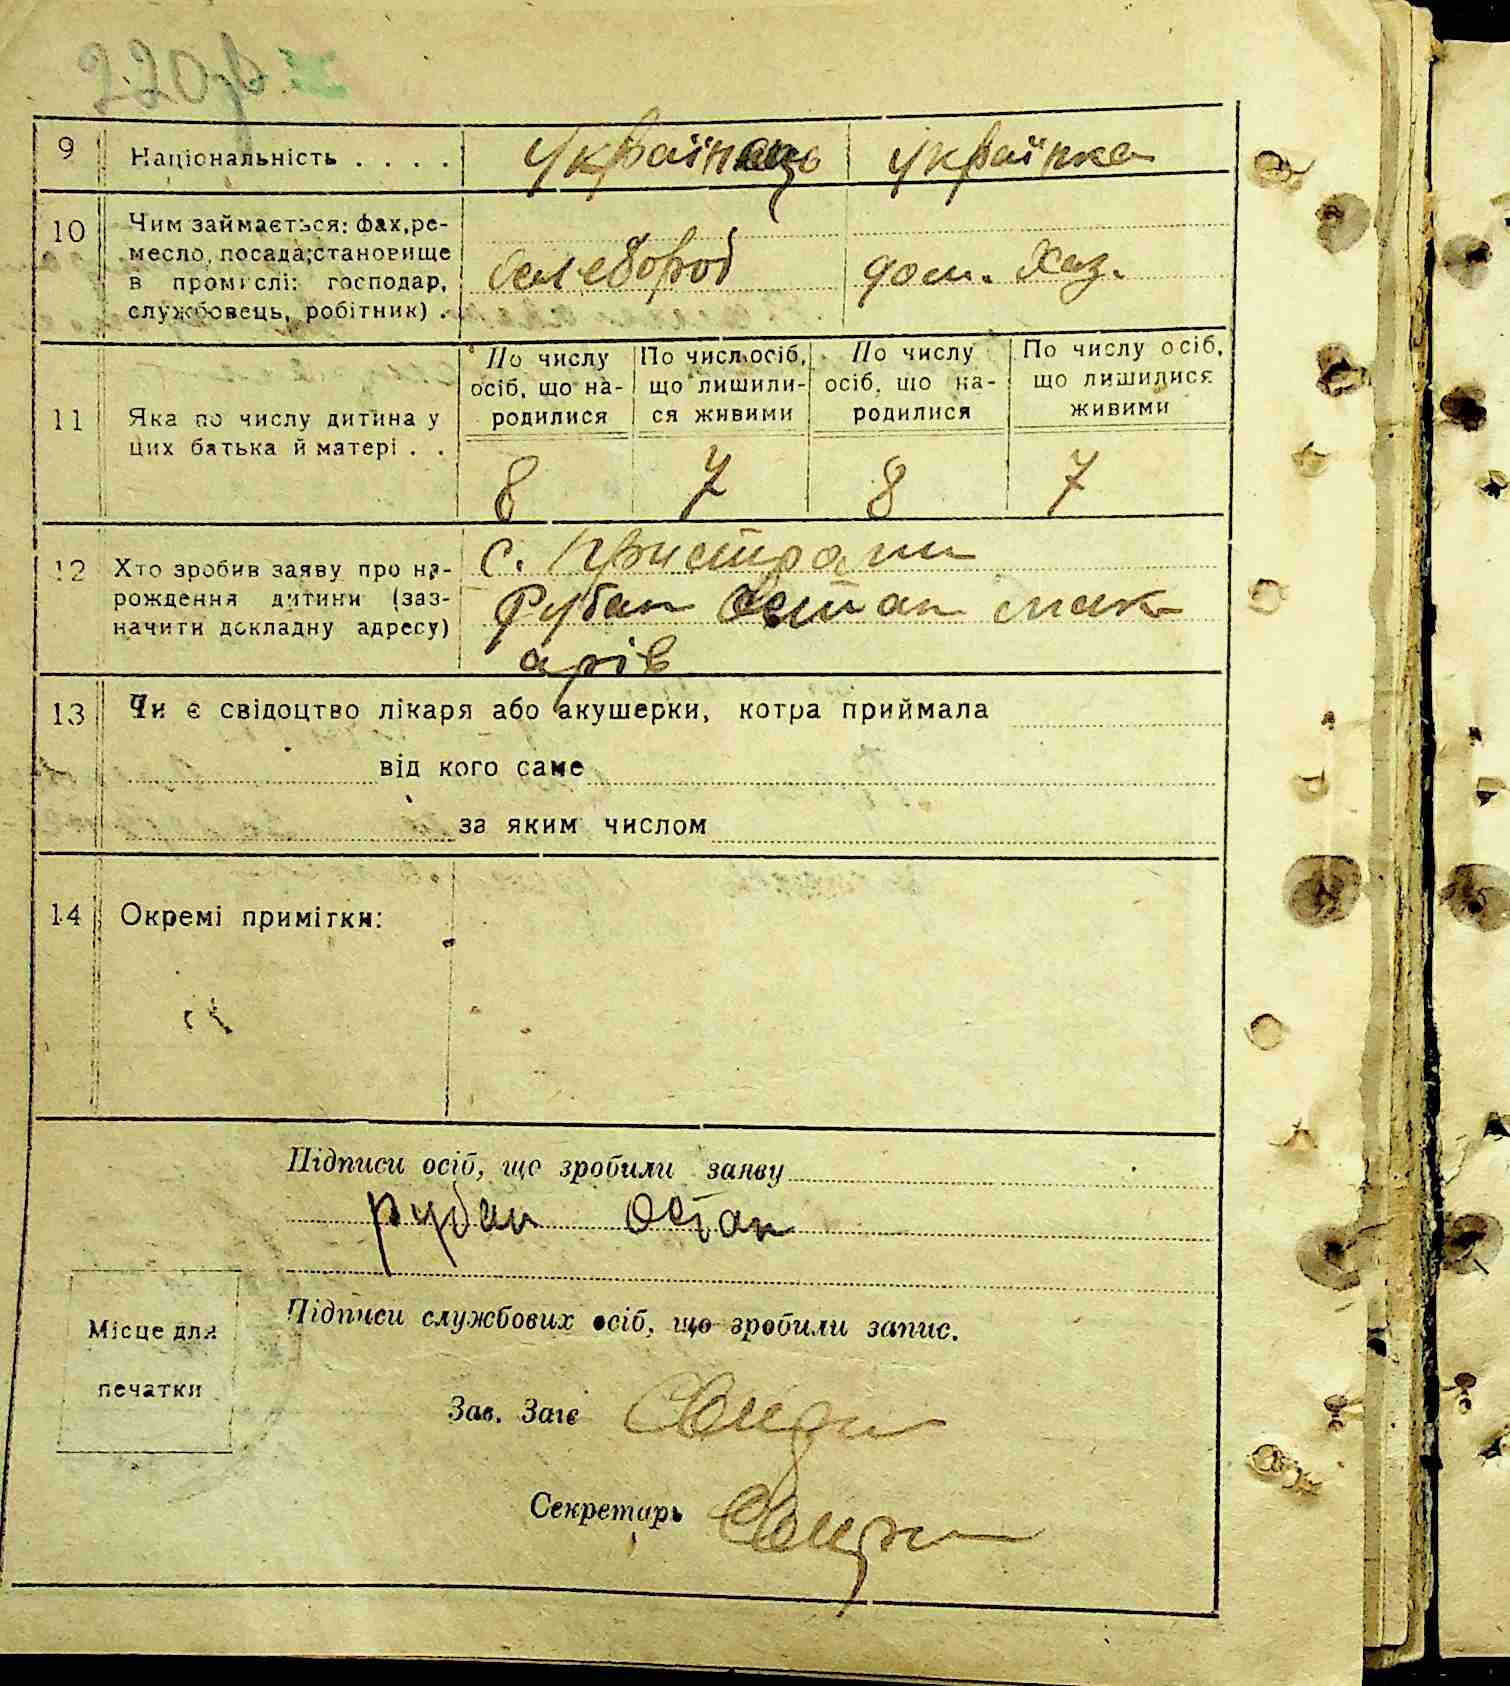 220
9 Національність . . . . Українець українка
10 Чим займається: фах, ре-
месло, посада; становище
в промислі: господар,
службовець, робітник) . хлебороб дом. хаз.
По числу осіб, що на-родилися По числ. осіб, що лишили-ся живими По числу осіб, що на-родилися По числу осіб, що лишилися живими
11 Яка по числу дитина у
цих батька й матері . . 8 7 8 7
12 Хто зробив заяву про на- с. Пристроми
рождення дитини (заз- Рубан Остап Мак
начити докладну адресу) арів
13 Чи є свідоцтво лікаря або акушерки, котра приймала
від кого саме
за яким числом
14 Окремі примітки:
Підписи осіб, що зробили заяву
Рубан Остап
Підписи службових осіб, що зробили запис.
Місце для
печатки
Зав. Загс
Секретарь